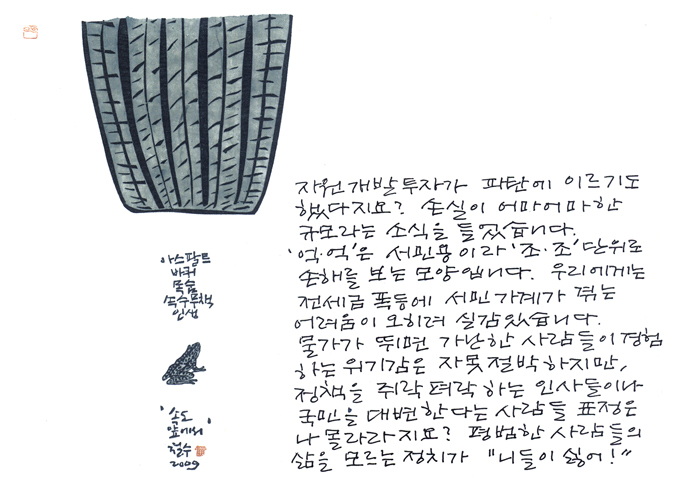 아스팔트
바퀴
목숨
속수무책
인생
'속도
앞에서'
철수
2009
자원개발투자가 파탄에 이르기도
했다지요? 손실이 어마어마한
규모라는 소식을 들었습니다.
'억·억'은 서민용이라 '조·조'단위로
손해를 보는 모양입니다. 우리에게는
전세금 폭등에 서민가계가 겪는
어려움이 오히려 실감있습니다.
물가가 뛰면 가난한 사람들이 경험
하는 위기감은 자못 절박하지만,
정책을 쥐락펴락 하는 인사들이나
국민을 대변한다는 사람들 표정은
나 몰라라지요? 평범한 사람들의
삶을 모르는 정치가 "니들이 싫어!"